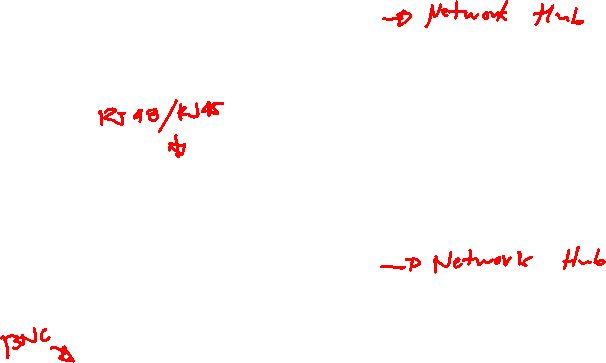 → Network Hub
RJ48/RJ45
→ Network Hub
BNC